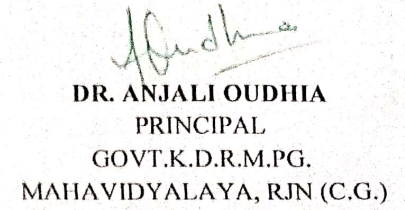 A Oudhia
DR. ANJALI OUDHIA
PRINCIPAL
GOVT.K.D.R.M.PG.
MAHAVIDYALAYA, RJN (C.G.)